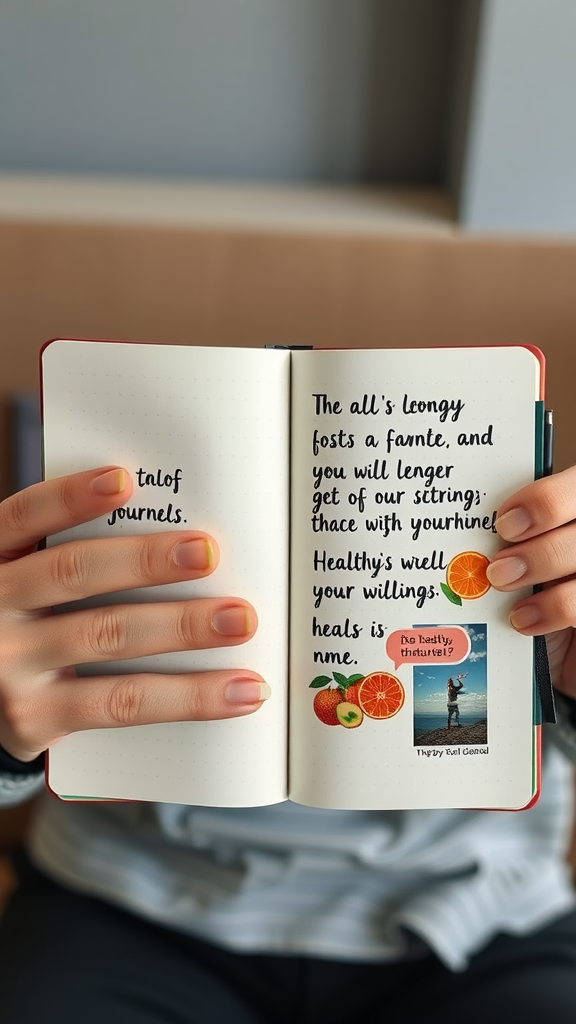 talof
journels.
The all's leongy
fosts a famte, and
you will lenger
get of our sctring;
thace with yourhinel
Healthy's well
your willings.
heals is
nme.